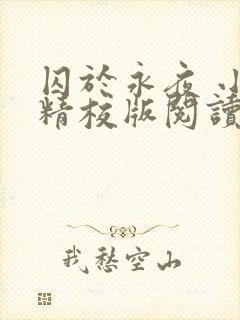 囚於永夜 小
精校版閱讀
我愁空山